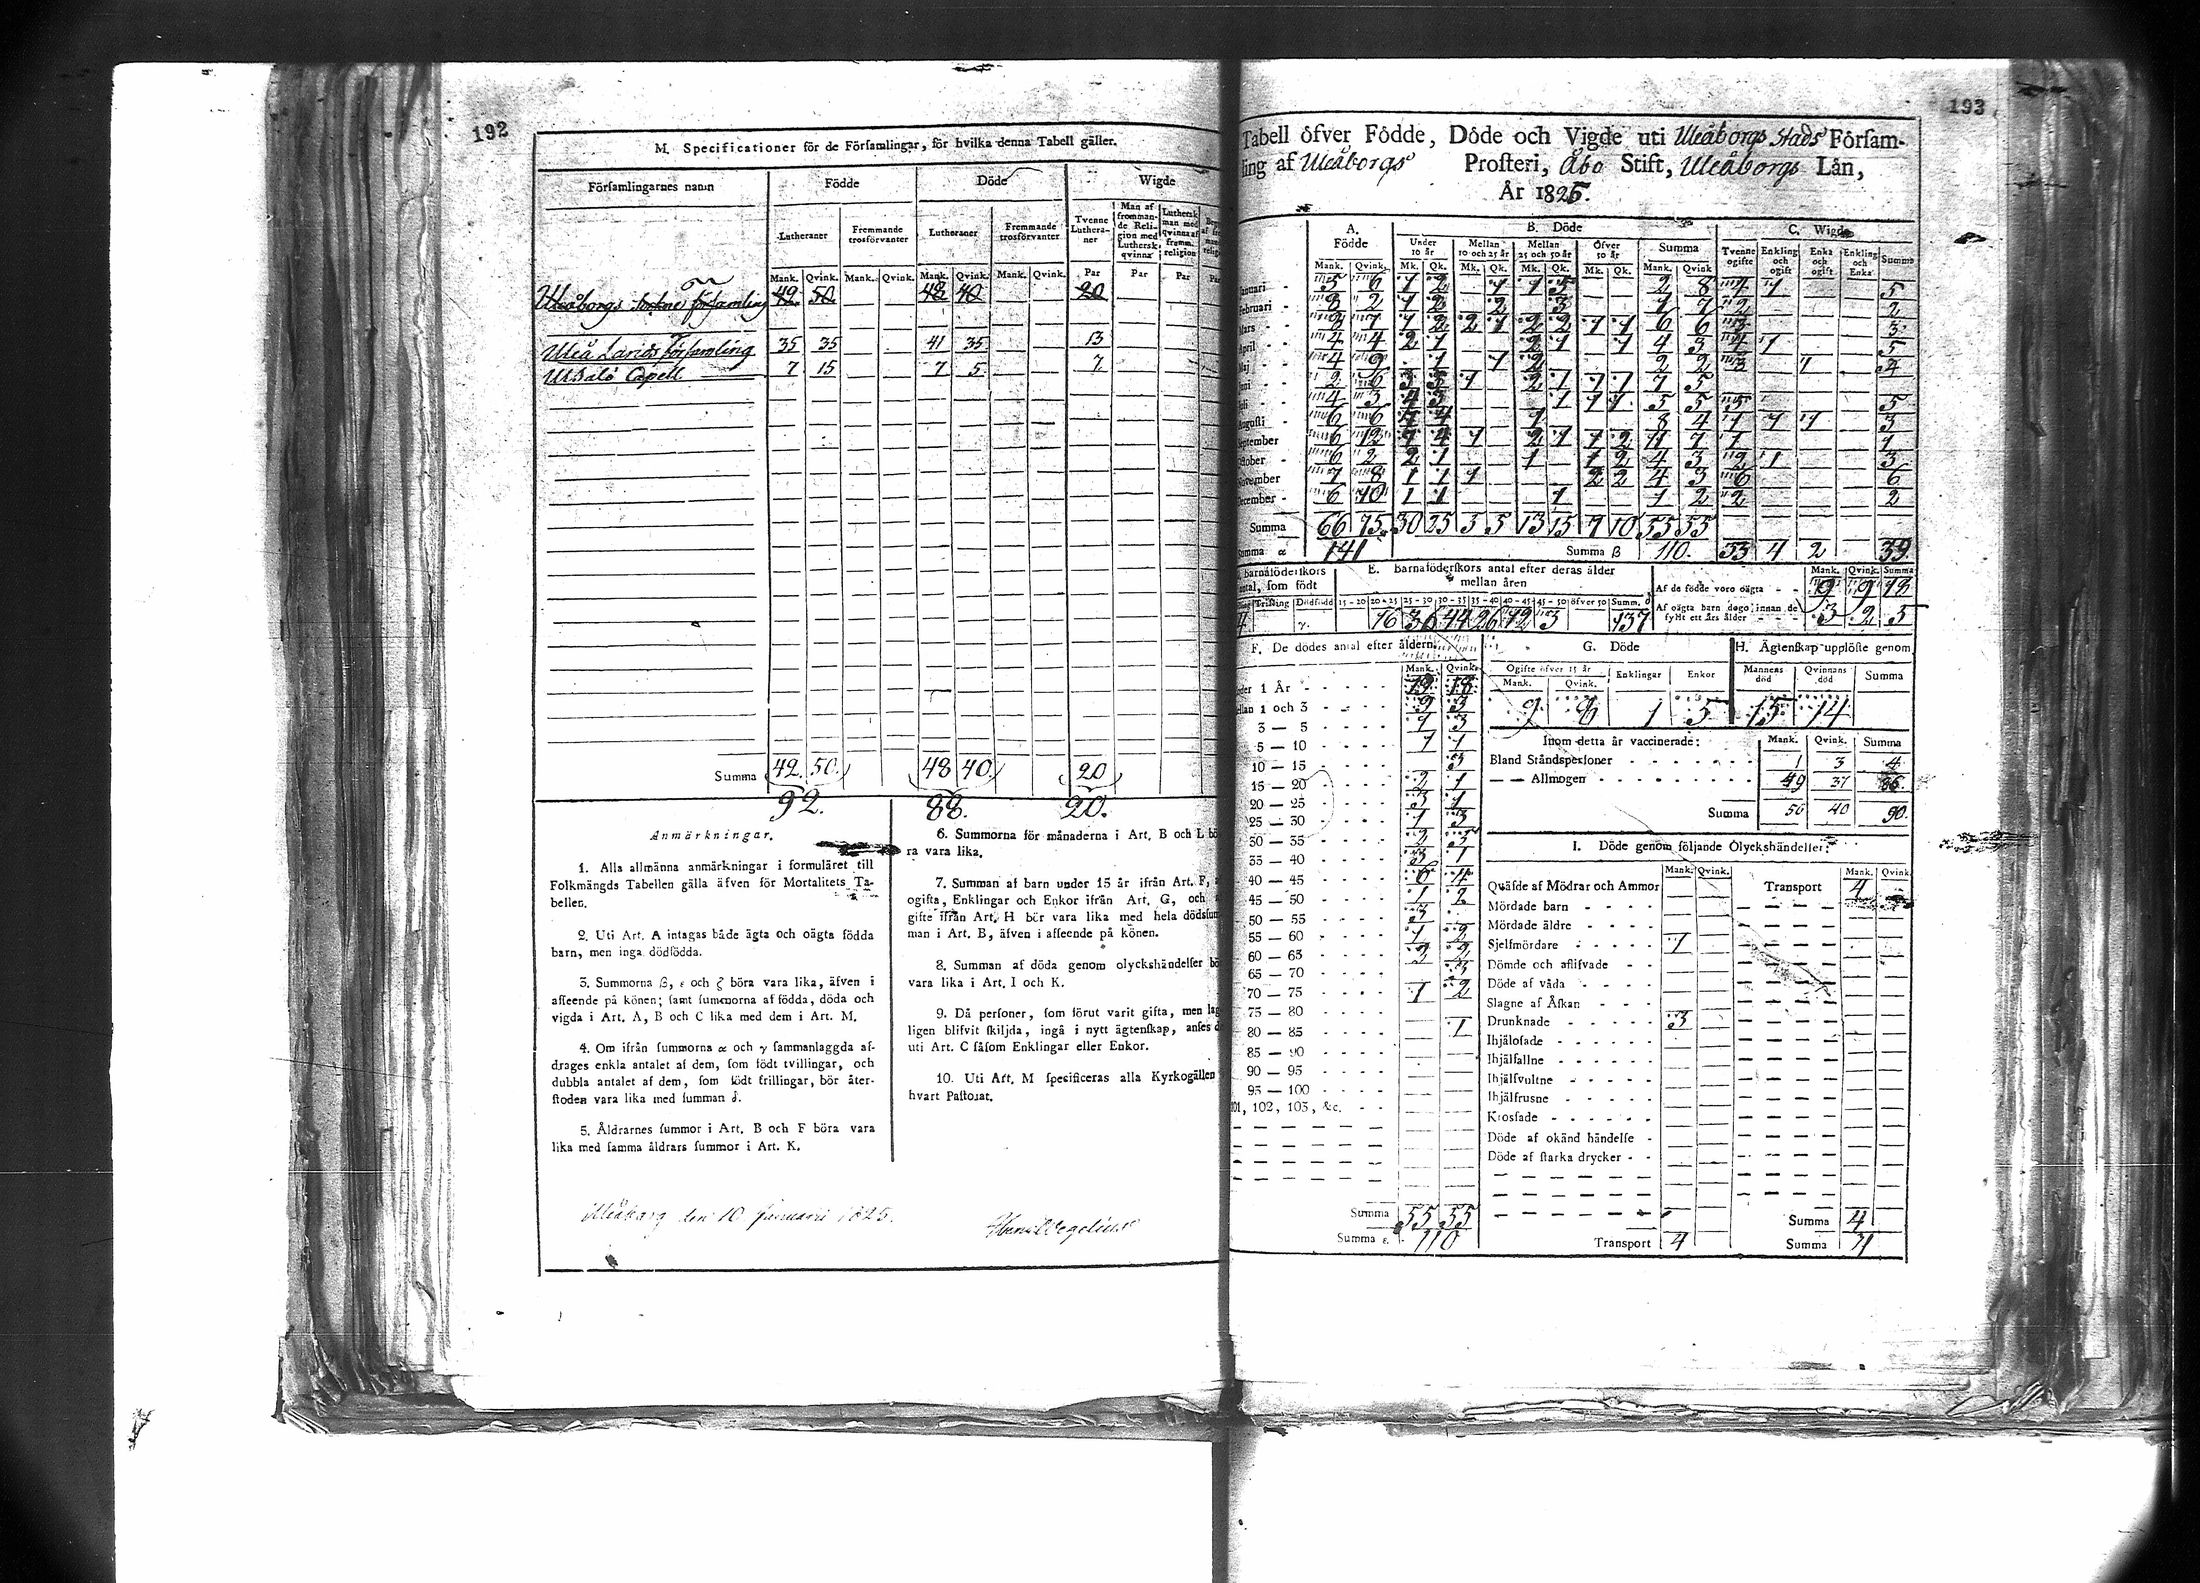 192
M. Specificationer för de Församlingar, för hvilka denna Tabell gäller.
Församlingarnes namn Födde Döde Wigde
Lutheraner Fremmande trosförvanter Lutheraner Fremmande trosförvanter Tvenne Lutheraner Man af frommande Religion med Luthersk qvinna Luthersk man med qvinna af fromm. religion
Mank. Qvink. Mank. Qvink. Mank. Qvink. Mank. Qvink. Par Par Par
Uleåborgs församling 42 50 48 40 20
Uleå Lands Församling 35 35 41 35 13
Capell 7 15 7 5 7
Summa 42 50 48 40 20
92. 88. 20.
Anmärkningar.
1. Alla allmänna anmärkningar i formuläret till
Folkmängds Tabellen gälla äfven för Mortalitets Ta-
bellen.
2. Uti Art. A intagas både ägta och oägta födda
barn, men inga dödfödda.
3. Summorna β, ε och ζ böra vara lika, äfven i
affeende på könen; samt summorna af födda, döda och
vigda i Art. A, B och C lika med dem i Art. M.
4. Om ifrån summorna α och γ sammanlaggda af-
drages enkla antalet af dem, som födt tvillingar, och
dubbla antalet af dem, som födt trillingar, bör åter-
stoden vara lika med summan δ.
5. Åldrarnes summor i Art. B och F böra vara
lika med samma åldrars summor i Art. K.
6. Summorna för månaderna i Art. B och L bö
ra vara lika.
7. Summan af barn under 15 år ifrån Art. F,
ogifta, Enklingar och Enkor ifrån Art. G, och
gifte ifrån Art. H bör vara lika med hela dödsum
man i Art. B, äfven i affeende på könen.
8. Summan af döda genom olyckshändelser bö
vara lika i Art. I och K.
9. Då personer, som förut varit gifta, men lag
ligen blifvit skiljda, ingå i nytt ägtenskap, anses d
uti Art. C såsom Enklingar eller Enkor.
10. Uti Art. M specificeras alla Kyrkogällen
hvart Pastorat.
Uleåborg den 10 Januarii 1825.
193
Tabell öfver Födde, Döde och Vigde uti Uleåborgs Stads Församling
ling af Uleåborgs Prosteri, Åbo Stift, Uleåborgs Län,
År 1825.
A. Födde B. Döde C. Wigde
Under 10 år Mellan 10 och 25 år Mellan 25 och 50 år Öfver 50 år Summa Tvenne ogifte Enkling och ogift Enka och ogift Enkling och Enka Summa
Mank. Qvink. Mk. Qk. Mk. Qk. Mk. Qk. Mk. Qk. Mank. Qvink
Januari 5 6 1 2 1 1 5 2 8 4 1 5
Februari 2 1 2 2 3 1 7 2 2
Mars 7 1 2 2 1 2 2 1 1 6 6 3 3
April 4 4 2 1 2 1 1 4 3 4 1 5
Maj 4 9 1 1 2 2 2 3 1 4
Juni 2 6 3 3 1 2 1 1 1 7 5
4 3 4 3 1 1 1 5 5 5 5
Augusti 6 6 7 4 1 8 4 1 1 1 3
September 6 12 7 4 1 2 1 1 2 11 7 1 1
October 6 2 2 1 1 1 2 4 3 2 1 3
November 7 8 1 1 1 2 2 4 3 6 6
December 6 10 1 1 1 1 2 2 2
Summa 66 75 30 25 3 5 13 15 9 10 55 55
Summa α 141 Summa β 110. 33 4 2 39
Barnaföderskors antal, som födt E. Barnaföderskors antal efter deras ålder mellan åren
Trilling Dödfödd 15-20 20-25 25-30 30-35 35-40 40-45 45-50 öfver 50 Summ. δ
γ. 16 36 44 26 12 3 137
Mank. Qvink. Summa
Af de födde voro oägta 9 9 18
Af oägta barn dogo innan de fyllt ett års ålder 3 2 5
F. De dödes antal efter åldern
Mank. Qvink.
Under 1 År 19 18
Mellan 1 och 3 9 3
3 — 5 1 3
5 — 10 1 1
10 — 15 3
15 — 20 2 1
20 — 25 3 1
25 — 30 1 3
30 — 35 2 5
35 — 40 3 1
40 — 45 6 4
45 — 50 1 2
50 — 55 3
55 — 60 1 2
60 — 65 2 2
65 — 70 3
70 — 75 1 2
75 — 80
80 — 85 1
85 — 90
90 — 95
95 — 100
101, 102, 103, &c.
Summa 55 55
Summa ε. 110
G. Döde
Ogifte öfver 15 år Enklingar Enkor
Mank. Qvink.
9 8 1 5
H. Ägtenskap upplöste genom
Mannens död Qvinnans död Summa
15 14
Inom detta år vaccinerade: Mank. Qvink. Summa
Bland Ståndspersoner 1 3 4
— — Allmogen 49 37 86
Summa 50 40 90.
I. Döde genom följande Olyckshändelser:
Mank. Qvink. Mank. Qvink
Qväfde af Mödrar och Ammor Transport 4
Mördade barn
Mördade äldre
Sjelfmördare 1
Dömde och aflifvade
Döde af våda
Slagne af Åskan
Drunknade 3
Ihjälosade
Ihjälfallne
Ihjälsvultne
Ihjälfrusne
Krossade
Döde af okänd händelse
Döde af starka drycker
Summa 4
Transport 4 Summa 4